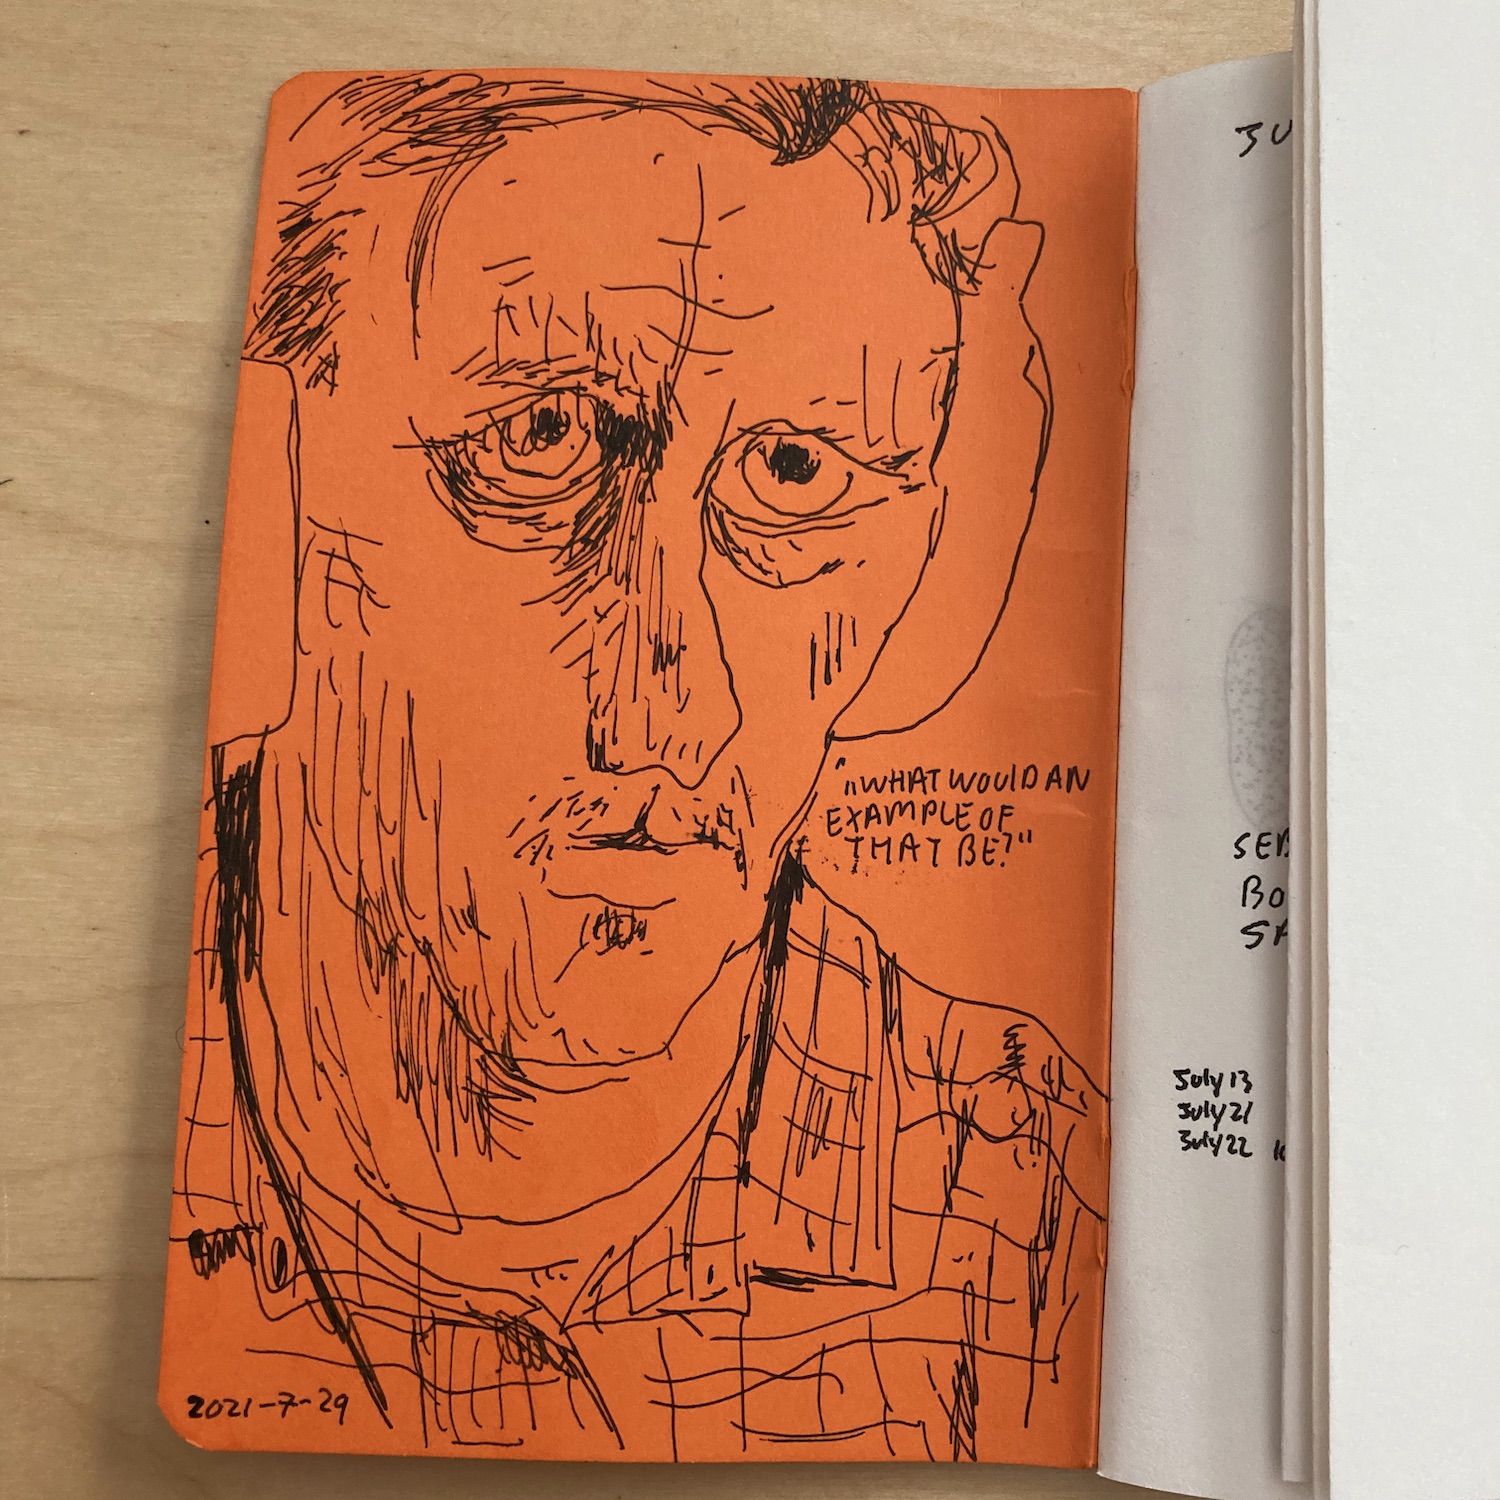 "WHAT WOULD AN
EXAMPLE OF
THAT BE?"
2021-7-29
July 13
July 21
July 22